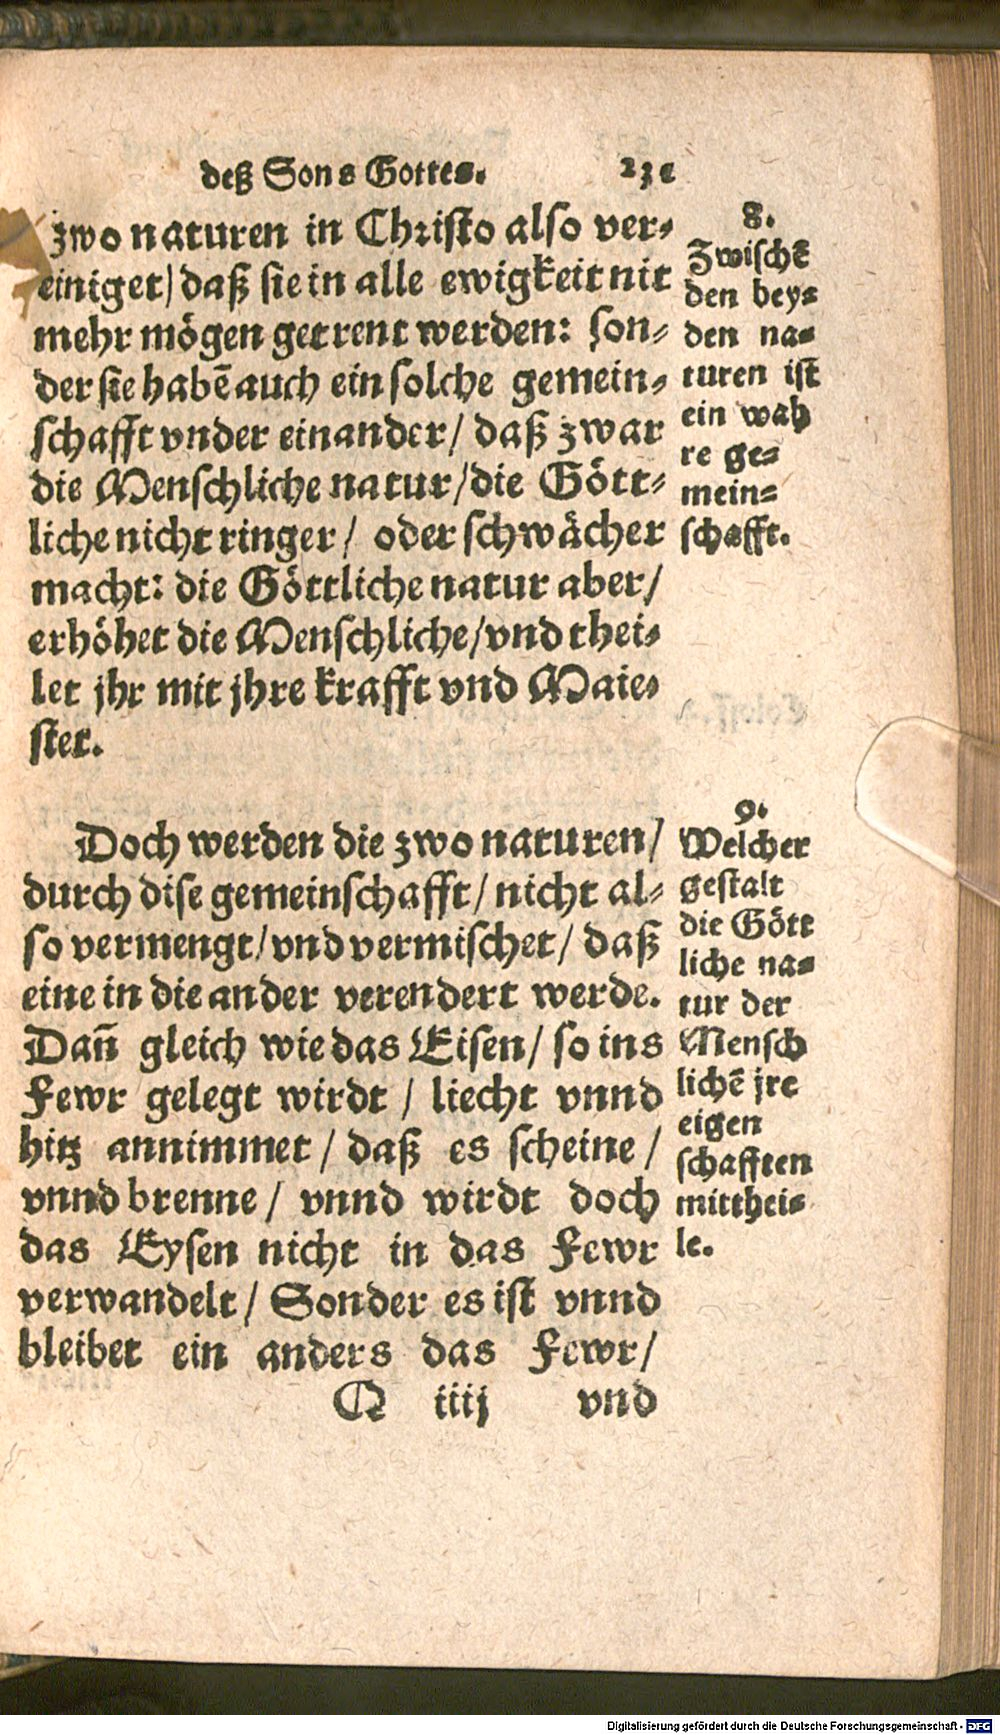 deß Sons Gottes.
zwo naturen in Christo also ver-
einiget/ daß sie in alle ewigkeit nit
mehr mögen getrent werden: son-
der sie habẽ auch ein solche gemein-
schafft vnder einander/ daß zwar
die Menschliche natur/ die Gött-
liche nicht ringer/ oder schwächer
macht: die Göttliche natur aber/
erhöhet die Menschliche/ vnd thei-
let jhr mit jhre krafft vnd Maie-
stet.
8.
Zwischẽ
den bey-
den na-
turen ist
ein wah
re ge-
mein-
schafft.
Doch werden die zwo naturen/
durch dise gemeinschafft/ nicht al-
so vermengt/ vnd vermischet/ daß
eine in die ander verendert werde.
Dañ gleich wie das Eisen/ so ins
Fewr gelegt wirdt/ liecht vnnd
hitz annimmet/ daß es scheine/
vnnd brenne/ vnnd wirdt doch
das Eysen nicht in das Fewr
verwandelt/ Sonder es ist vnnd
bleibet ein anders das Fewr/
9.
Welcher
gestalt
die Gött
liche na-
tur der
Mensch
lichẽ jre
eigen
schafften
mitthei-
le.
Q iiij vnd
Digitalisierung gefördert durch die Deutsche Forschungsgemeinschaft - DFG